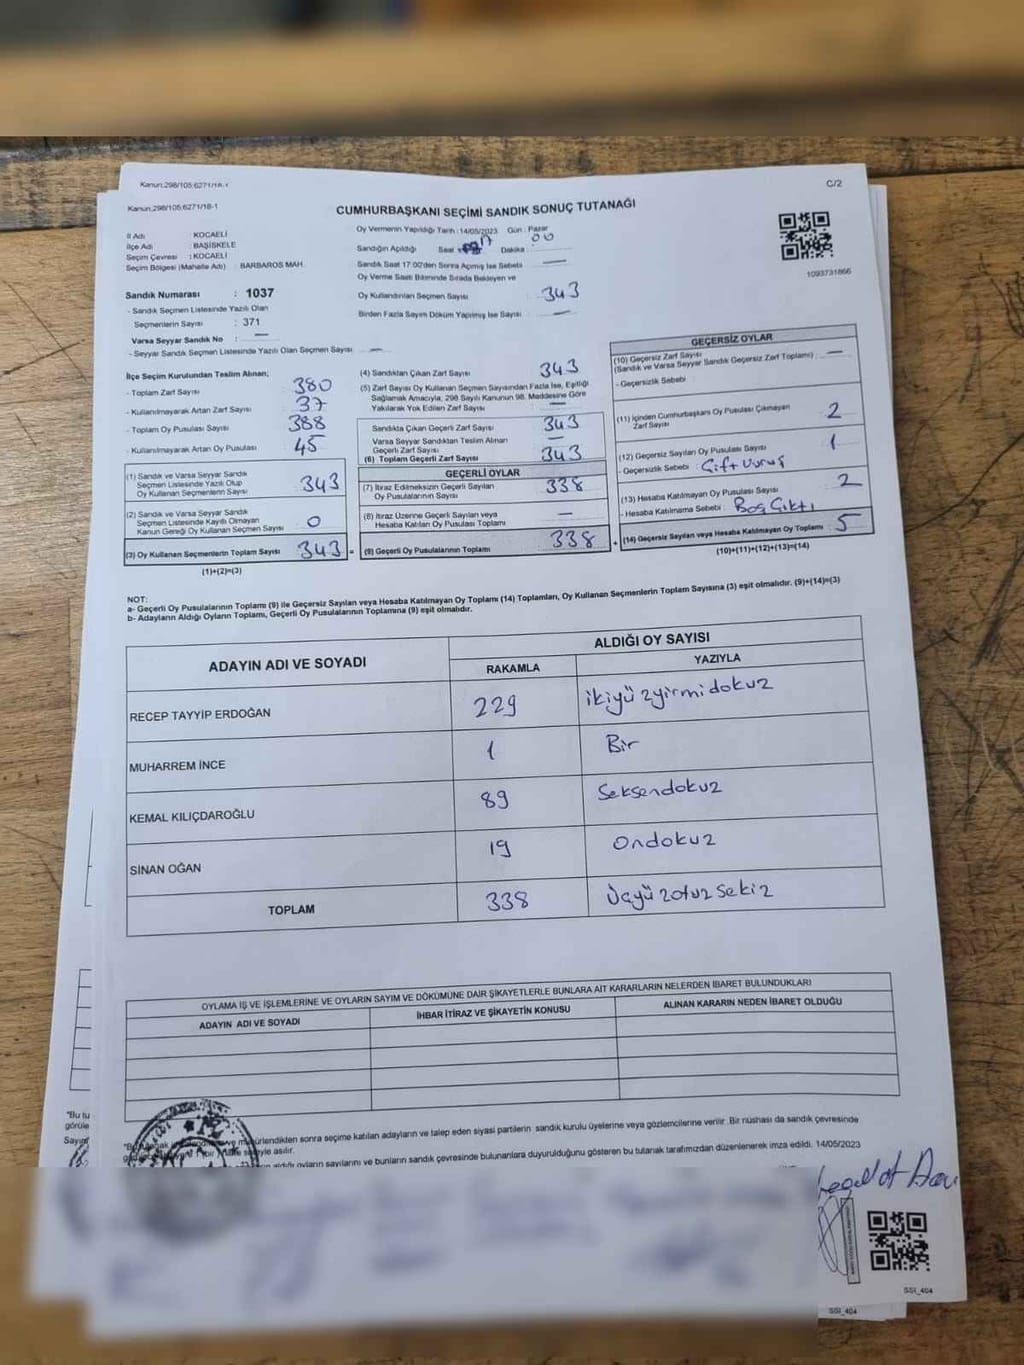 Kanun;298/105;6271/18-1
C/2
Kanun;298/105;6271/18-1
CUMHURBAŞKANI SEÇİMİ SANDIK SONUÇ TUTANAĞI
İl Adı : KOCAELİ
İlçe Adı : BAŞİSKELE
Seçim Çevresi : KOCAELİ
Seçim Bölgesi (Mahalle Adı) : BARBAROS MAH.
Oy Vermenin Yapıldığı Tarih : 14/05/2023 Gün : Pazar
Sandığın Açıldığı Saat 17 Dakika : 00
Sandık Saat 17:00'den Sonra Açılmış İse Sebebi —
Oy Verme Saati Bitiminde Sırada Bekleyen ve
Oy Kullandırılan Seçmen Sayısı 343
Birden Fazla Sayım Döküm Yapılmış İse Sayısı —
1093731866
Sandık Numarası : 1037
- Sandık Seçmen Listesinde Yazılı Olan
Seçmenlerin Sayısı : 371
Varsa Seyyar Sandık No : —
- Seyyar Sandık Seçmen Listesinde Yazılı Olan Seçmen Sayısı —
İlçe Seçim Kurulundan Teslim Alınan;
- Toplam Zarf Sayısı 380
- Kullanılmayarak Artan Zarf Sayısı 37
- Toplam Oy Pusulası Sayısı 388
- Kullanılmayarak Artan Oy Pusulası 45
(1) Sandık ve Varsa Seyyar Sandık
Seçmen Listesinde Yazılı Olup
Oy Kullanan Seçmenlerin Sayısı 343
(2) Sandık ve Varsa Seyyar Sandık
Seçmen Listesinde Kayıtlı Olmayan
Kanun Gereği Oy Kullanan Seçmen Sayısı 0
(3) Oy Kullanan Seçmenlerin Toplam Sayısı 343 =
(1)+(2)=(3)
(4) Sandıktan Çıkan Zarf Sayısı 343
(5) Zarf Sayısı Oy Kullanan Seçmen Sayısından Fazla İse, Eşitliği
Sağlamak Amacıyla, 298 Sayılı Kanunun 98. Maddesine Göre
Yakılarak Yok Edilen Zarf Sayısı —
Sandıkta Çıkan Geçerli Zarf Sayısı 343
Varsa Seyyar Sandıktan Teslim Alınan
Geçerli Zarf Sayısı —
(6) Toplam Geçerli Zarf Sayısı 343
GEÇERLİ OYLAR
(7) İtiraz Edilmeksizin Geçerli Sayılan
Oy Pusulalarının Sayısı 338
(8) İtiraz Üzerine Geçerli Sayılan veya
Hesaba Katılan Oy Pusulası Toplamı —
(9) Geçerli Oy Pusulalarının Toplamı 338 +
GEÇERSİZ OYLAR
(10) Geçersiz Zarf Sayısı
(Sandık ve Varsa Seyyar Sandık Geçersiz Zarf Toplamı) —
- Geçersizlik Sebebi :
(11) İçinden Cumhurbaşkanı Oy Pusulası Çıkmayan
Zarf Sayısı 2
(12) Geçersiz Sayılan Oy Pusulası Sayısı 1
- Geçersizlik Sebebi : Çift Vuruş
(13) Hesaba Katılmayan Oy Pusulası Sayısı 2
- Hesaba Katılmama Sebebi : Boş Çıktı
(14) Geçersiz Sayılan veya Hesaba Katılmayan Oy Toplamı 5
(10)+(11)+(12)+(13)=(14)
NOT:
a- Geçerli Oy Pusulalarının Toplamı (9) ile Geçersiz Sayılan veya Hesaba Katılmayan Oy Toplamı (14) Toplamları, Oy Kullanan Seçmenlerin Toplam Sayısına (3) eşit olmalıdır. (9)+(14)=(3)
b- Adayların Aldığı Oyların Toplamı, Geçerli Oy Pusulalarının Toplamına (9) eşit olmalıdır.
ADAYIN ADI VE SOYADI ALDIĞI OY SAYISI
RAKAMLA YAZIYLA
RECEP TAYYİP ERDOĞAN 229 ikiyüzyirmidokuz
MUHARREM İNCE 1 Bir
KEMAL KILIÇDAROĞLU 89 Seksendokuz
SİNAN OĞAN 19 Ondokuz
TOPLAM 338 Üçyüzotuzsekiz
OYLAMA İŞ VE İŞLEMLERİNE VE OYLARIN SAYIM VE DÖKÜMÜNE DAİR ŞİKAYETLERLE BUNLARA AİT KARARLARIN NELERDEN İBARET BULUNDUKLARI
ADAYIN ADI VE SOYADI İHBAR İTİRAZ VE ŞİKAYETİN KONUSU ALINAN KARARIN NEDEN İBARET OLDUĞU
"Bu tu
görüle
Sayım
sonra seçime katılan adayların ve talep eden siyasi partilerin sandık kurulu üyelerine veya gözlemcilerine verilir. Bir nüshası da sandık çevresinde
asılır.
aldığı oyların sayılarını ve bunların sandık çevresinde bulunanlara duyurulduğunu gösteren bu tutanak tarafımızdan düzenlenerek imza edildi. 14/05/2023
SSI_404
SSI_404